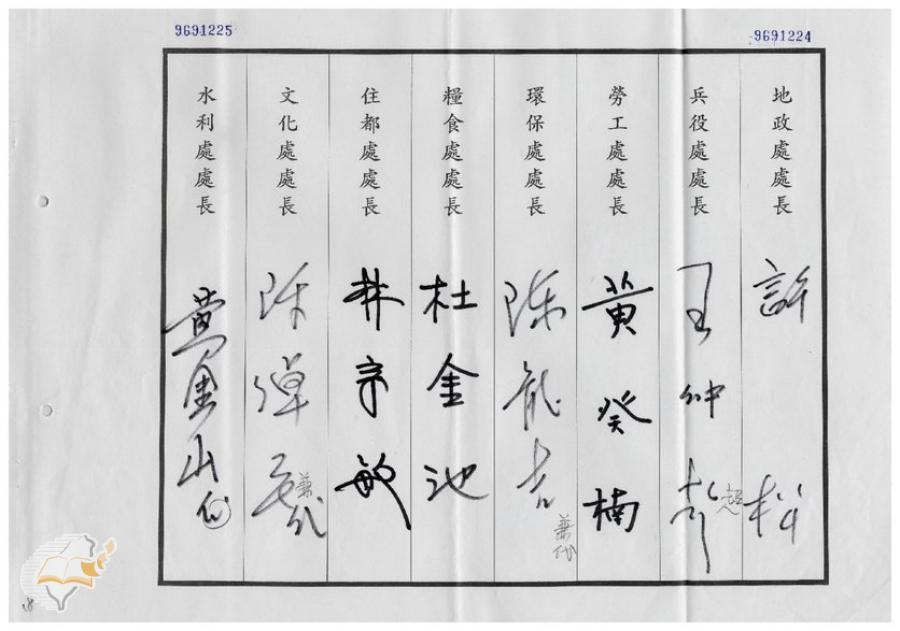 9691225
9691224
地政處處長
許 松
兵役處處長
王仲
超
勞工處處長
黃癸楠
環保處處長
陳龍吉
兼代
糧食處處長
杜金池
住都處處長
林宗敏
文化處處長
陳
兼代
水利處處長
黃金山